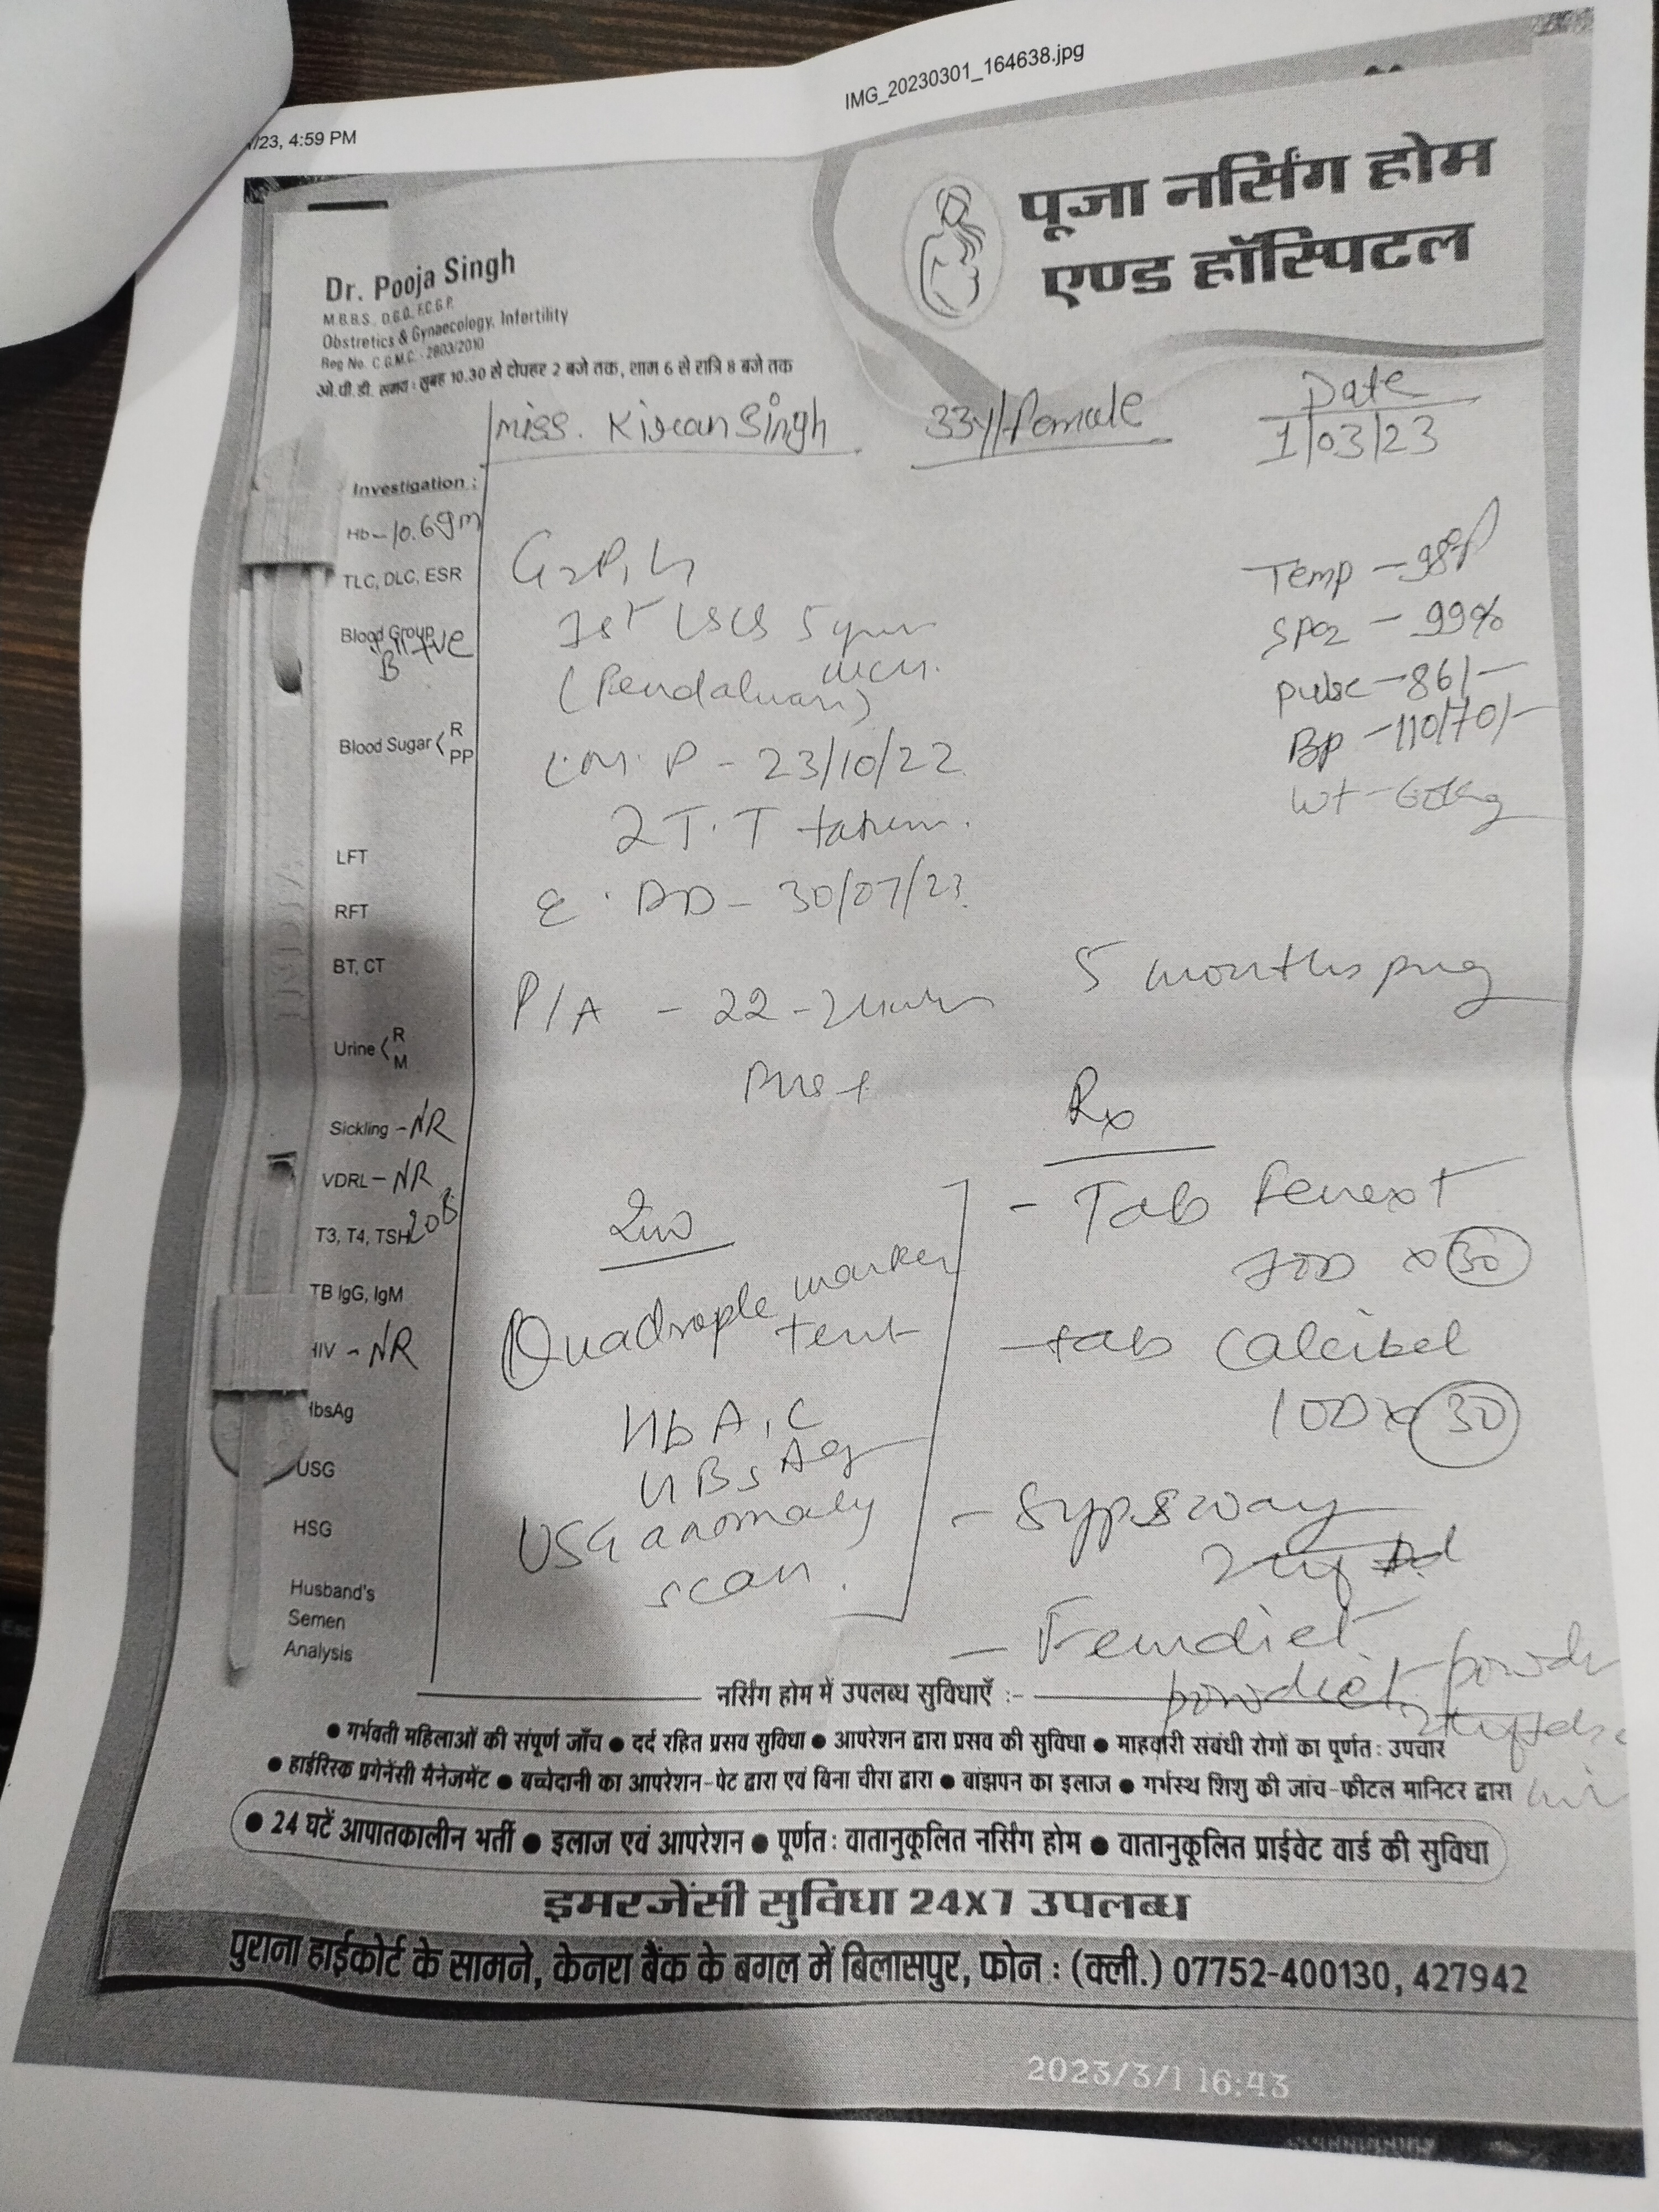 IMG_20230301_164638.jpg
/23, 4:59 PM
पूजा नर्सिंग होम
एण्ड हॉस्पिटल
Dr. Pooja Singh
M.B.B.S., D.G.O., F.C.G.P.
Obstretics & Gynaecology, Infertility
Reg No. C.G.M.C. - 2803/2010
ओ.पी.डी. समय : सुबह 10.30 से दोपहर 2 बजे तक, शाम 6 से रात्रि 8 बजे तक
Miss. Kiran Singh 33y/Female Date
1/03/23
Investigation :
Hb - 10.6gm
TLC, DLC, ESR
Blood Group
B +ve
Blood Sugar < R
PP
LFT
RFT
BT, CT
Urine < R
M
Sickling - NR
VDRL - NR
T3, T4, TSH
TB IgG, IgM
HIV - NR
HbsAg
USG
HSG
Husband's
Semen
Analysis
G2P1L1
1st LSCS 5 year
L.M.P - 23/10/22
2 T.T taken.
E.DD - 30/07/23
P/A - 22-24wks
Temp - 98°f
SPO2 - 99%
pulse - 86/-
Bp - 110/70/-
Wt - 60kg
5 months preg
Inv
Quadraple marker
test
HbA1C
HBsAg
USG anomaly
scan.
Rx
- Tab Fenext
1OD x 30
- tab Calcibel
1OD x 30
- Syp
- Femdiet
powder
नर्सिंग होम में उपलब्ध सुविधाएँ :-
● गर्भवती महिलाओं की संपूर्ण जाँच ● दर्द रहित प्रसव सुविधा ● आपरेशन द्वारा प्रसव की सुविधा ● माहवारी संबंधी रोगों का पूर्णतः उपचार
● हाईरिस्क प्रगेनेंसी मैनेजमेंट ● बच्चेदानी का आपरेशन-पेट द्वारा एवं बिना चीरा द्वारा ● बांझपन का इलाज ● गर्भस्थ शिशु की जांच-फीटल मानिटर द्वारा
● 24 घटें आपातकालीन भर्ती ● इलाज एवं आपरेशन ● पूर्णतः वातानुकूलित नर्सिंग होम ● वातानुकूलित प्राईवेट वार्ड की सुविधा
इमरजेंसी सुविधा 24X7 उपलब्ध
पुराना हाईकोर्ट के सामने, केनरा बैंक के बगल में बिलासपुर, फोन : (क्ली.) 07752-400130, 427942
2023/3/1 16:43